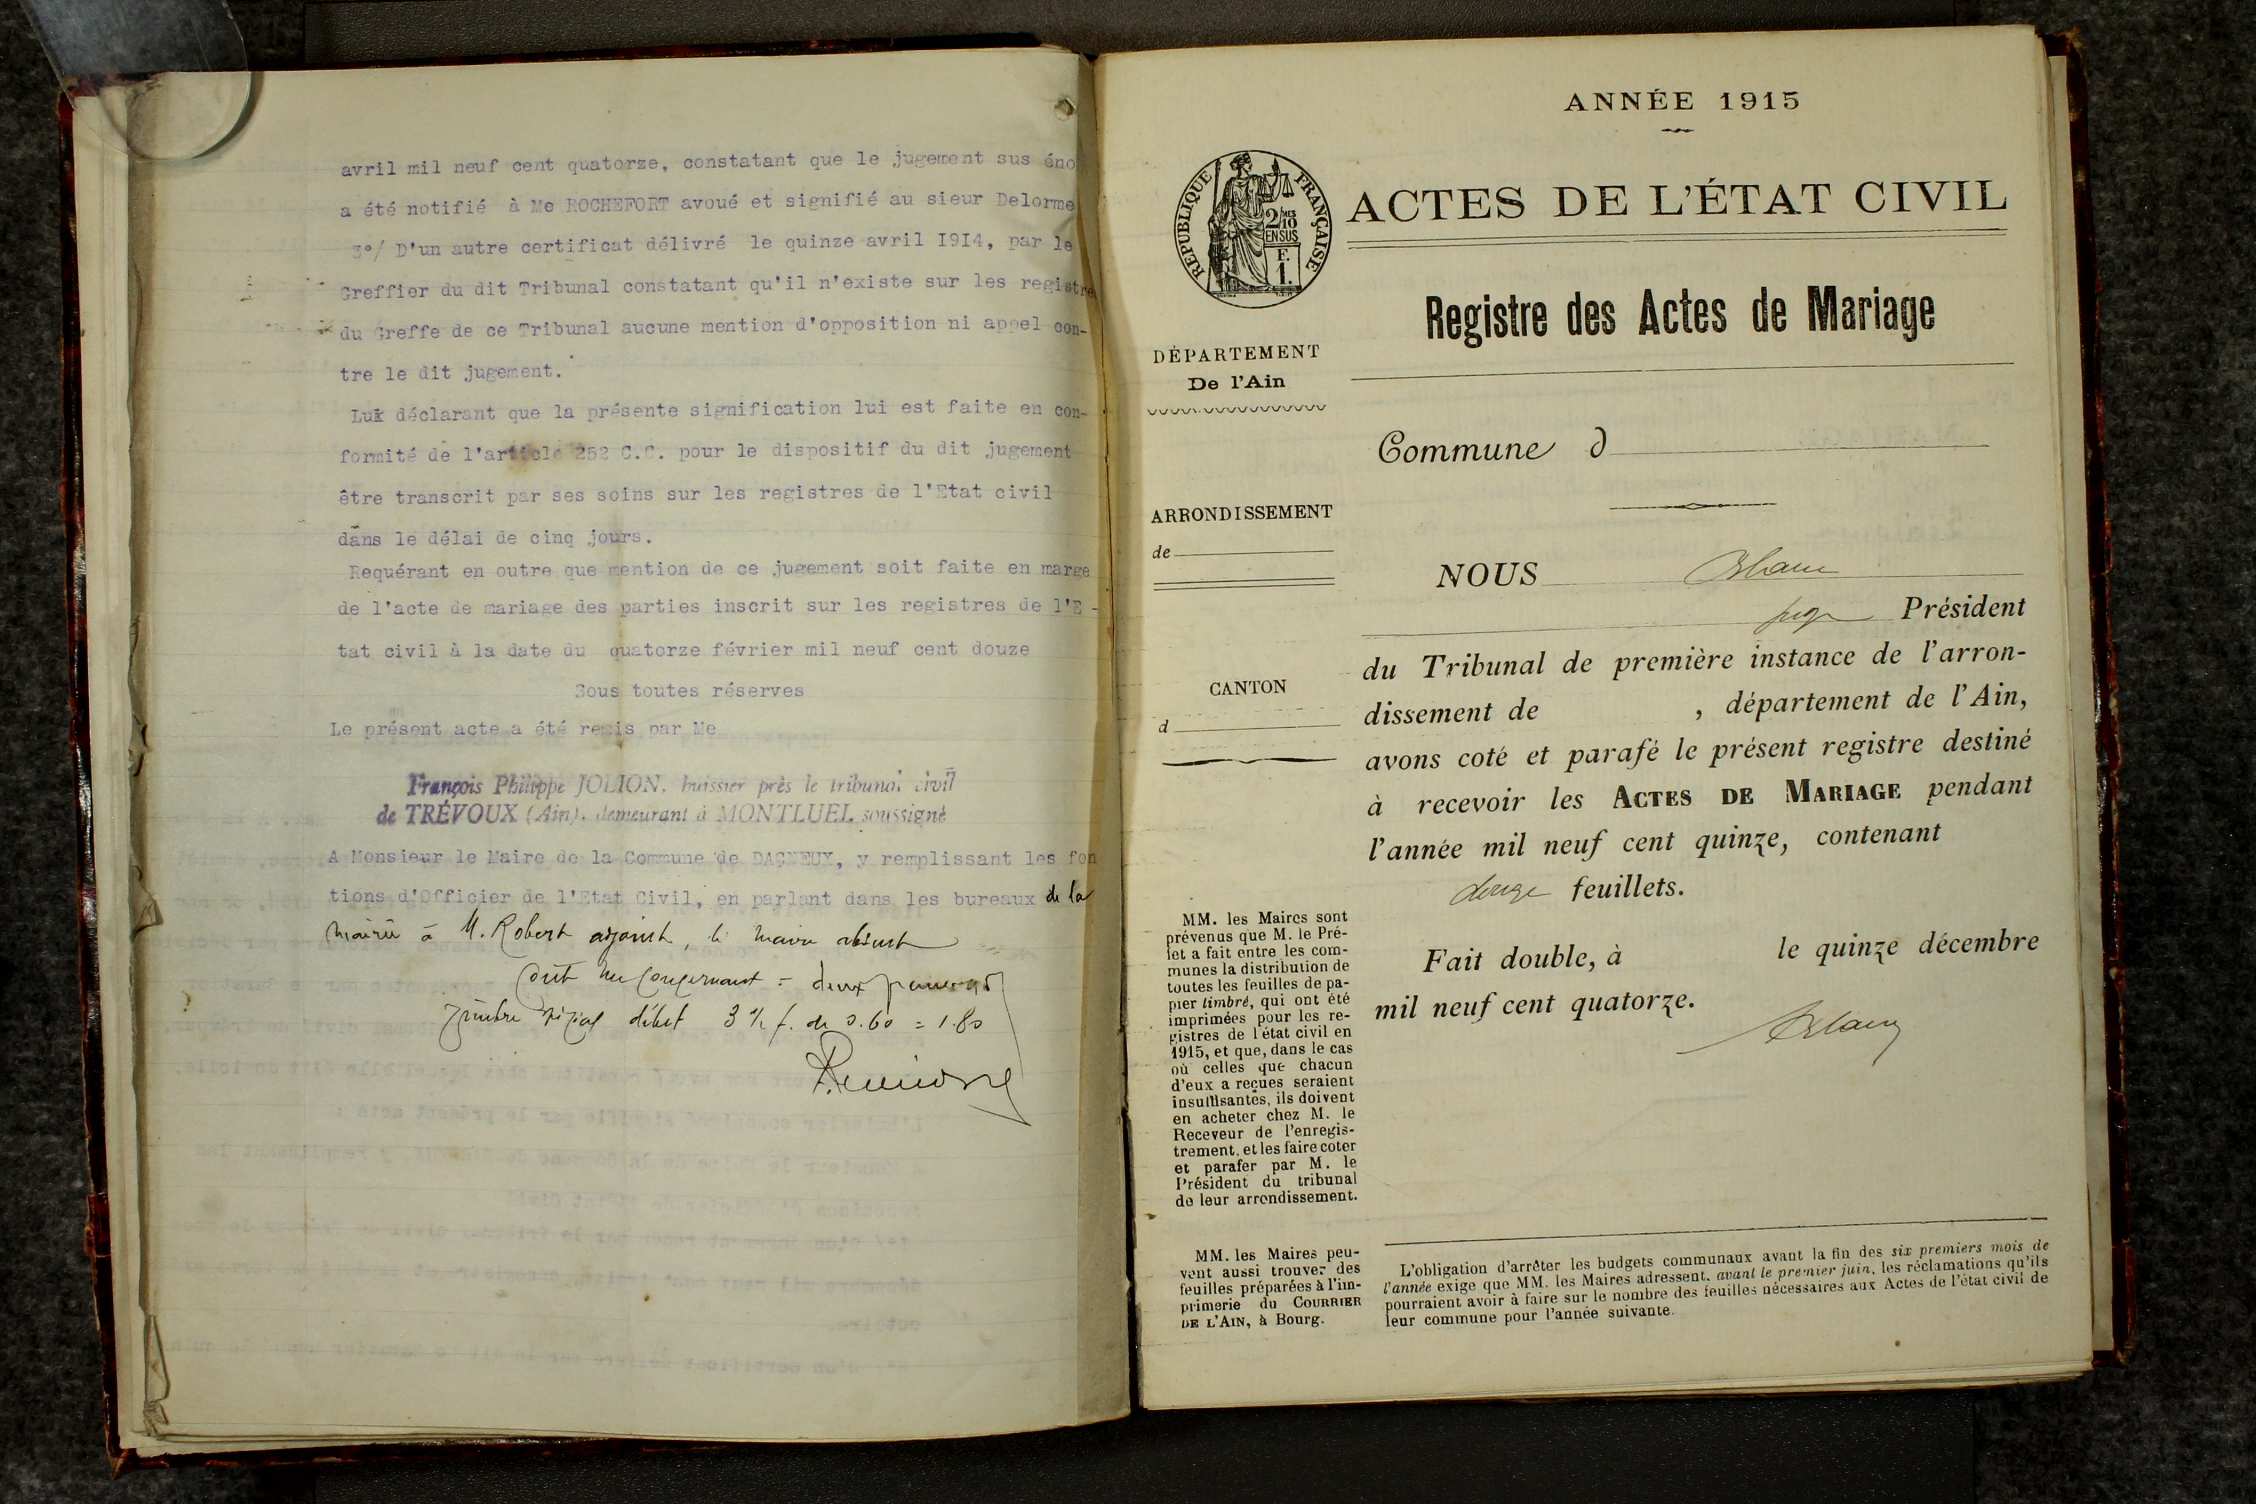 avril mil neuf cent quatorze, constatant que le jugement sus éno
a été notifié à Me ROCHEFORT avoué et signifié au sieur Delorme
3°/ D'un autre certificat délivré le quinze avril I9I4, par le
Greffier du dit Tribunal constatant qu'il n'existe sur les registre
du Greffe de ce Tribunal aucune mention d'opposition ni appel con-
tre le dit jugement.
Lui déclarant que la présente signification lui est faite en con-
formité de l'article 252 C.C. pour le dispositif du dit jugement
être transcrit par ses soins sur les registres de l'Etat civil
dans le délai de cinq jours.
Requérant en outre que mention de ce jugement soit faite en marge
de l'acte de mariage des parties inscrit sur les registres de l'E -
tat civil à la date du quatorze février mil neuf cent douze
Sous toutes réserves
Le présent acte a été remis par Me
François Philippe JOLION, huissier près le tribunal civil
de TRÉVOUX (Ain), demeurant à MONTLUEL soussigné
A Monsieur le Maire de la Commune de DAGNEUX, y remplissant les fon
tions d'Officier de l'Etat Civil, en parlant dans les bureaux de la
mairie à M. Robert adjoint, le maire absent
deux
débet 3 1/2 f. de 0.60 = 1.80
ANNÉE 1915
RÉPUBLIQUE FRANÇAISE
2/10 MES
EN SUS
F.
1.
ACTES DE L'ÉTAT CIVIL
Registre des Actes de Mariage
DÉPARTEMENT
De l'Ain
Commune d
ARRONDISSEMENT
de
NOUS
juge Président
du Tribunal de première instance de l'arron-
CANTON
dissement de , département de l'Ain,
d
avons coté et parafé le présent registre destiné
à recevoir les ACTES DE MARIAGE pendant
l'année mil neuf cent quinze, contenant
douze feuillets.
Fait double, à le quinze décembre
mil neuf cent quatorze.
MM. les Maires sont
prévenus que M. le Pré-
fet a fait entre les com-
munes la distribution de
toutes les feuilles de pa-
pier timbré, qui ont été
imprimées pour les re-
gistres de l'état civil en
1915, et que, dans le cas
où celles que chacun
d'eux a reçues seraient
insuffisantes, ils doivent
en acheter chez M. le
Receveur de l'enregis-
trement, et les faire coter
et parafer par M. le
Président du tribunal
de leur arrondissement.
MM. les Maires peu-
vent aussi trouver des
feuilles préparées à l'im-
primerie du COURRIER
DE L'AIN, à Bourg.
L'obligation d'arrêter les budgets communaux avant la fin des six premiers mois de
l'année exige que MM. les Maires adressent, avant le premier juin, les réclamations qu'ils
pourraient avoir à faire sur le nombre des feuilles nécessaires aux Actes de l'état civil de
leur commune pour l'année suivante.